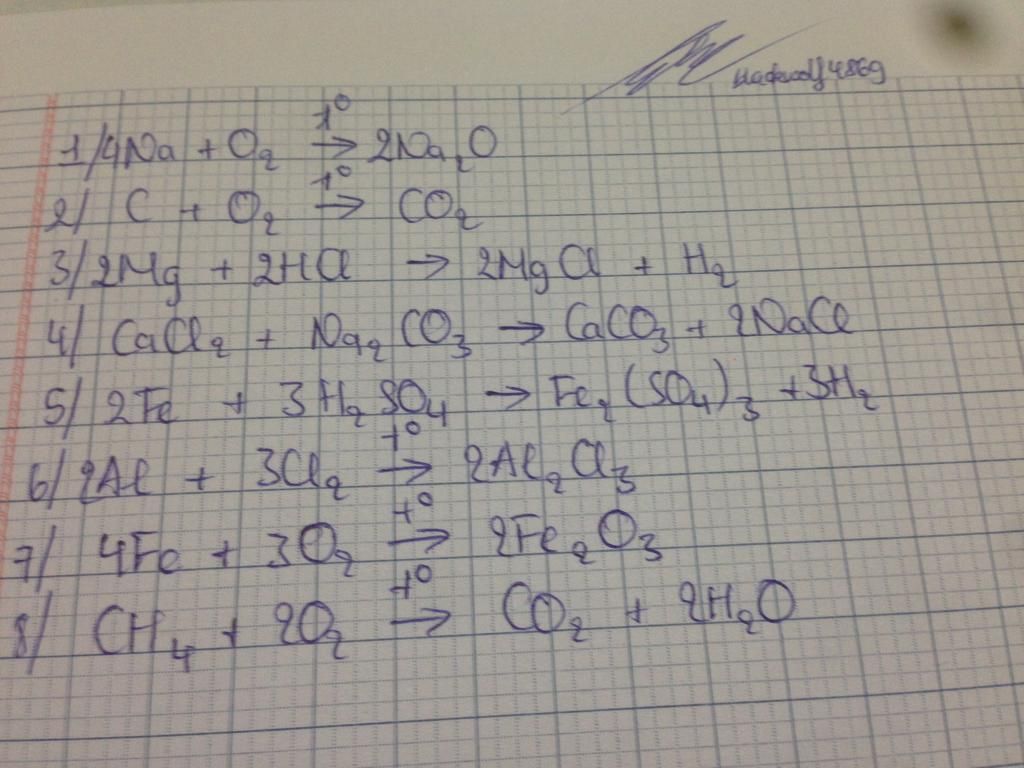 1/ 4Na + O₂ →t° 2Na₂O
2/ C + O₂ →t° CO₂
3/ 2Mg + 2HCl → 2MgCl + H₂
4/ CaCl₂ + Na₂CO₃ → CaCO₃ + 2NaCl
5/ 2Fe + 3H₂SO₄ → Fe₂(SO₄)₃ + 3H₂
6/ 2Al + 3Cl₂ →t° 2Al₂Cl₃
7/ 4Fe + 3O₂ →t° 2Fe₂O₃
8/ CH₄ + 2O₂ →t° CO₂ + 2H₂O